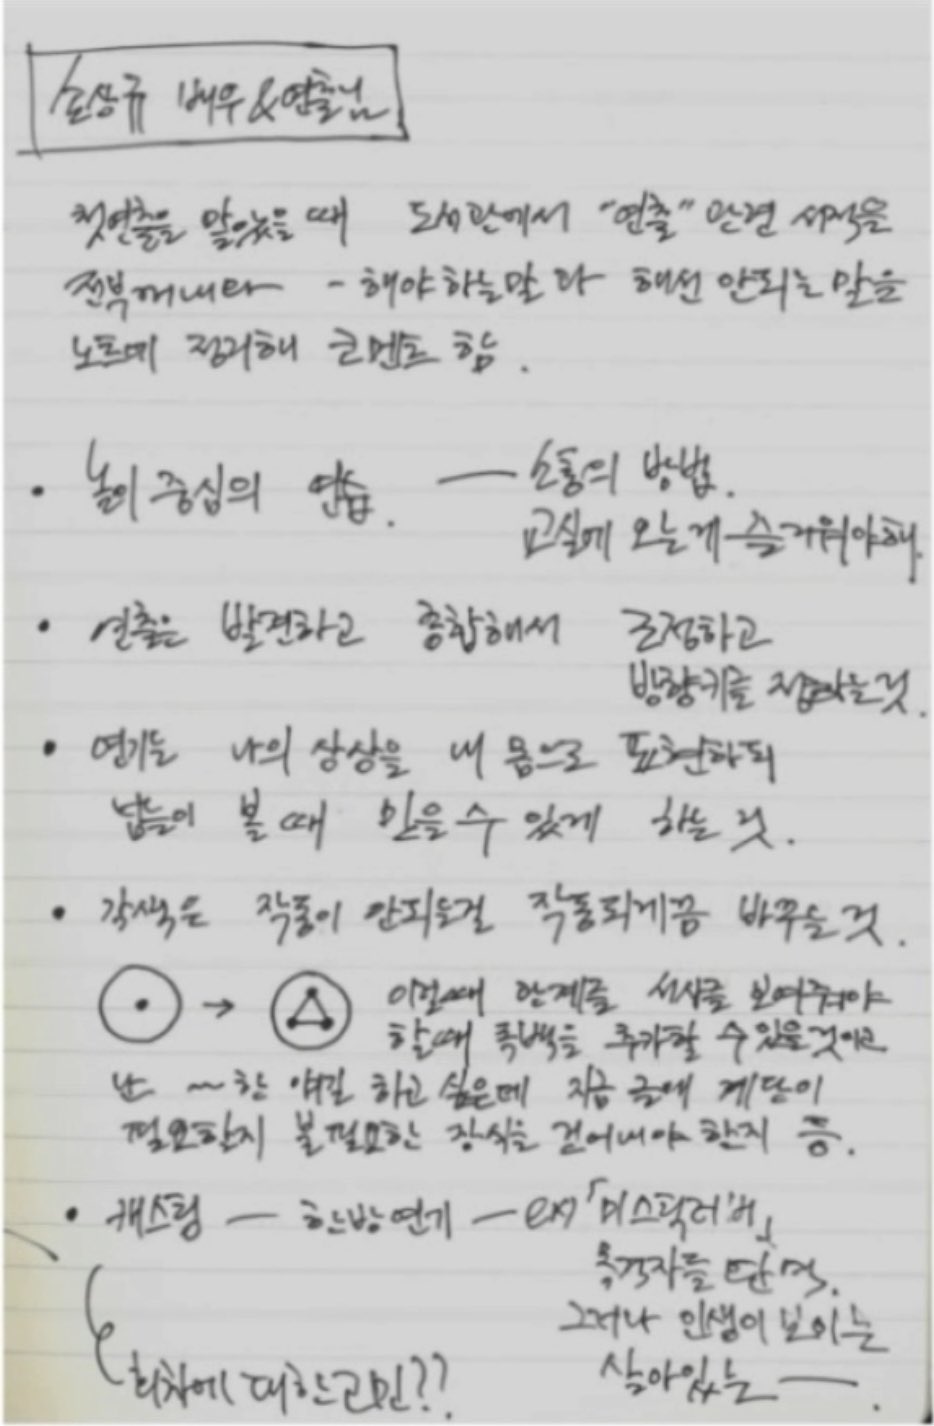 손상규 배우&연출님
첫연출을 맡았을 때 도서관에서 "연출" 관련 서적을
전부꺼내다 - 해야하는말 다 해선 안되는 말을
노트에 정리해 코멘트 함.
• 놀이 중심의 연습. — 소통의 방법.
교실에 오는게 즐거워야해.
• 연출은 발견하고 종합해서 조정하고
방향키를 잡는것.
• 연기는 나의 상상을 내 몸으로 표현하되
남들이 볼 때 믿을 수 있게 하는 것.
• 각색은 작동이 안되는걸 작동되게끔 바꾸는 것.
→ 이럴때 한계를 서사를 보여줘야
할때 독백을 추가할 수 있을것이고
난 ~한 얘길 하고 싶은데 지금 글에 계단이
필요한지 불필요한 장식을 걷어내야 한지 등.
• 캐스팅 — 한방연기 — ex) 「미스틱리버」
목격자들 단역.
그러나 인생이 보이는
살아있는 —.
회차에 대한고민??